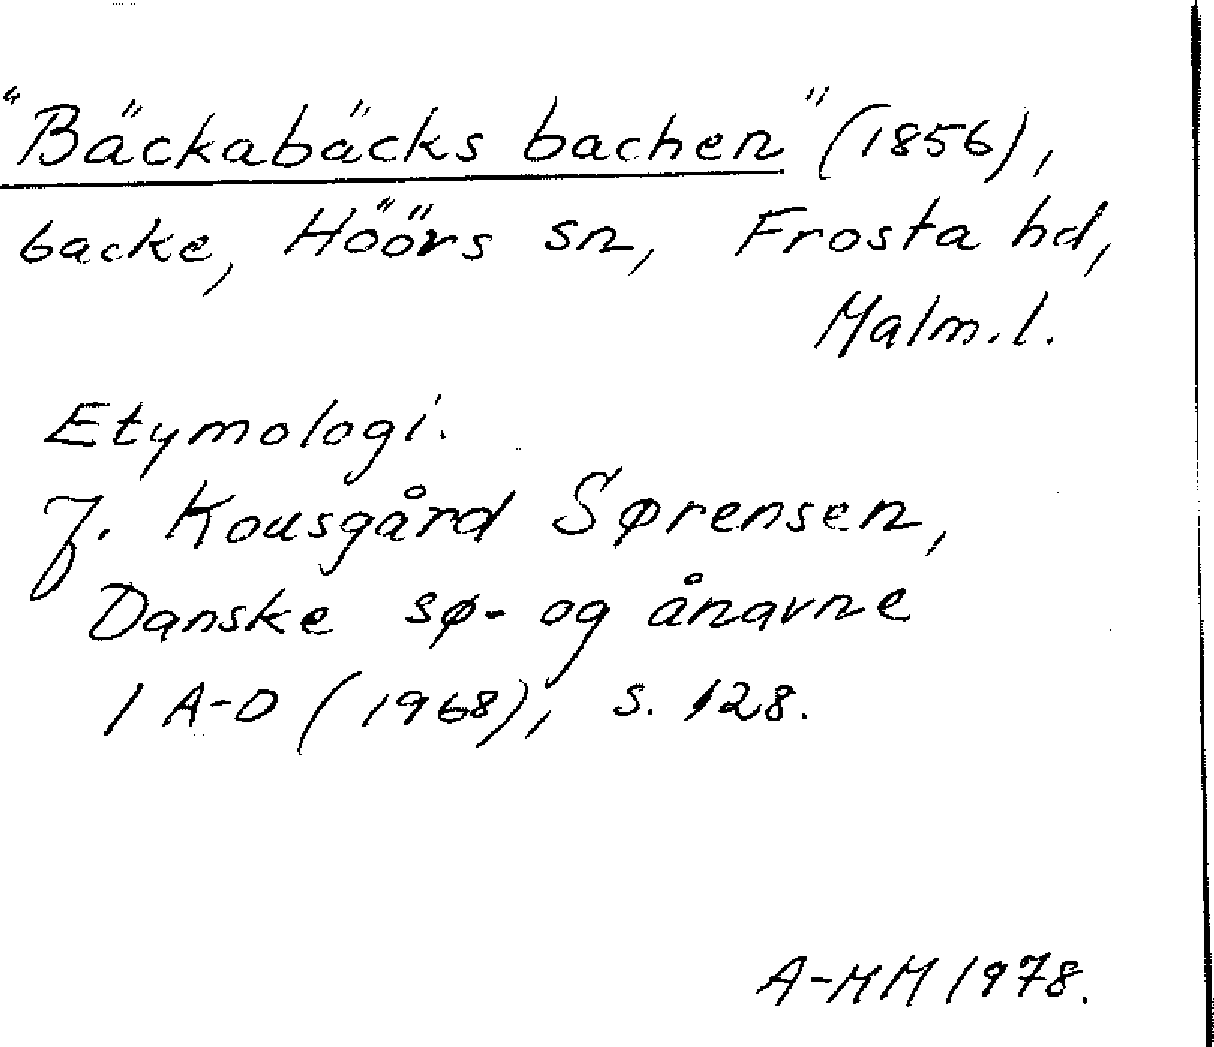 "Bäckabäcks bachen" (1856),
backe, Höörs sn, Frosta hd,
Malm.l.
Etymologi.
J. Kousgård Sørensen,
Danske sø- og ånavne
1 A-D (1968), s. 128.
A-MM 1978.